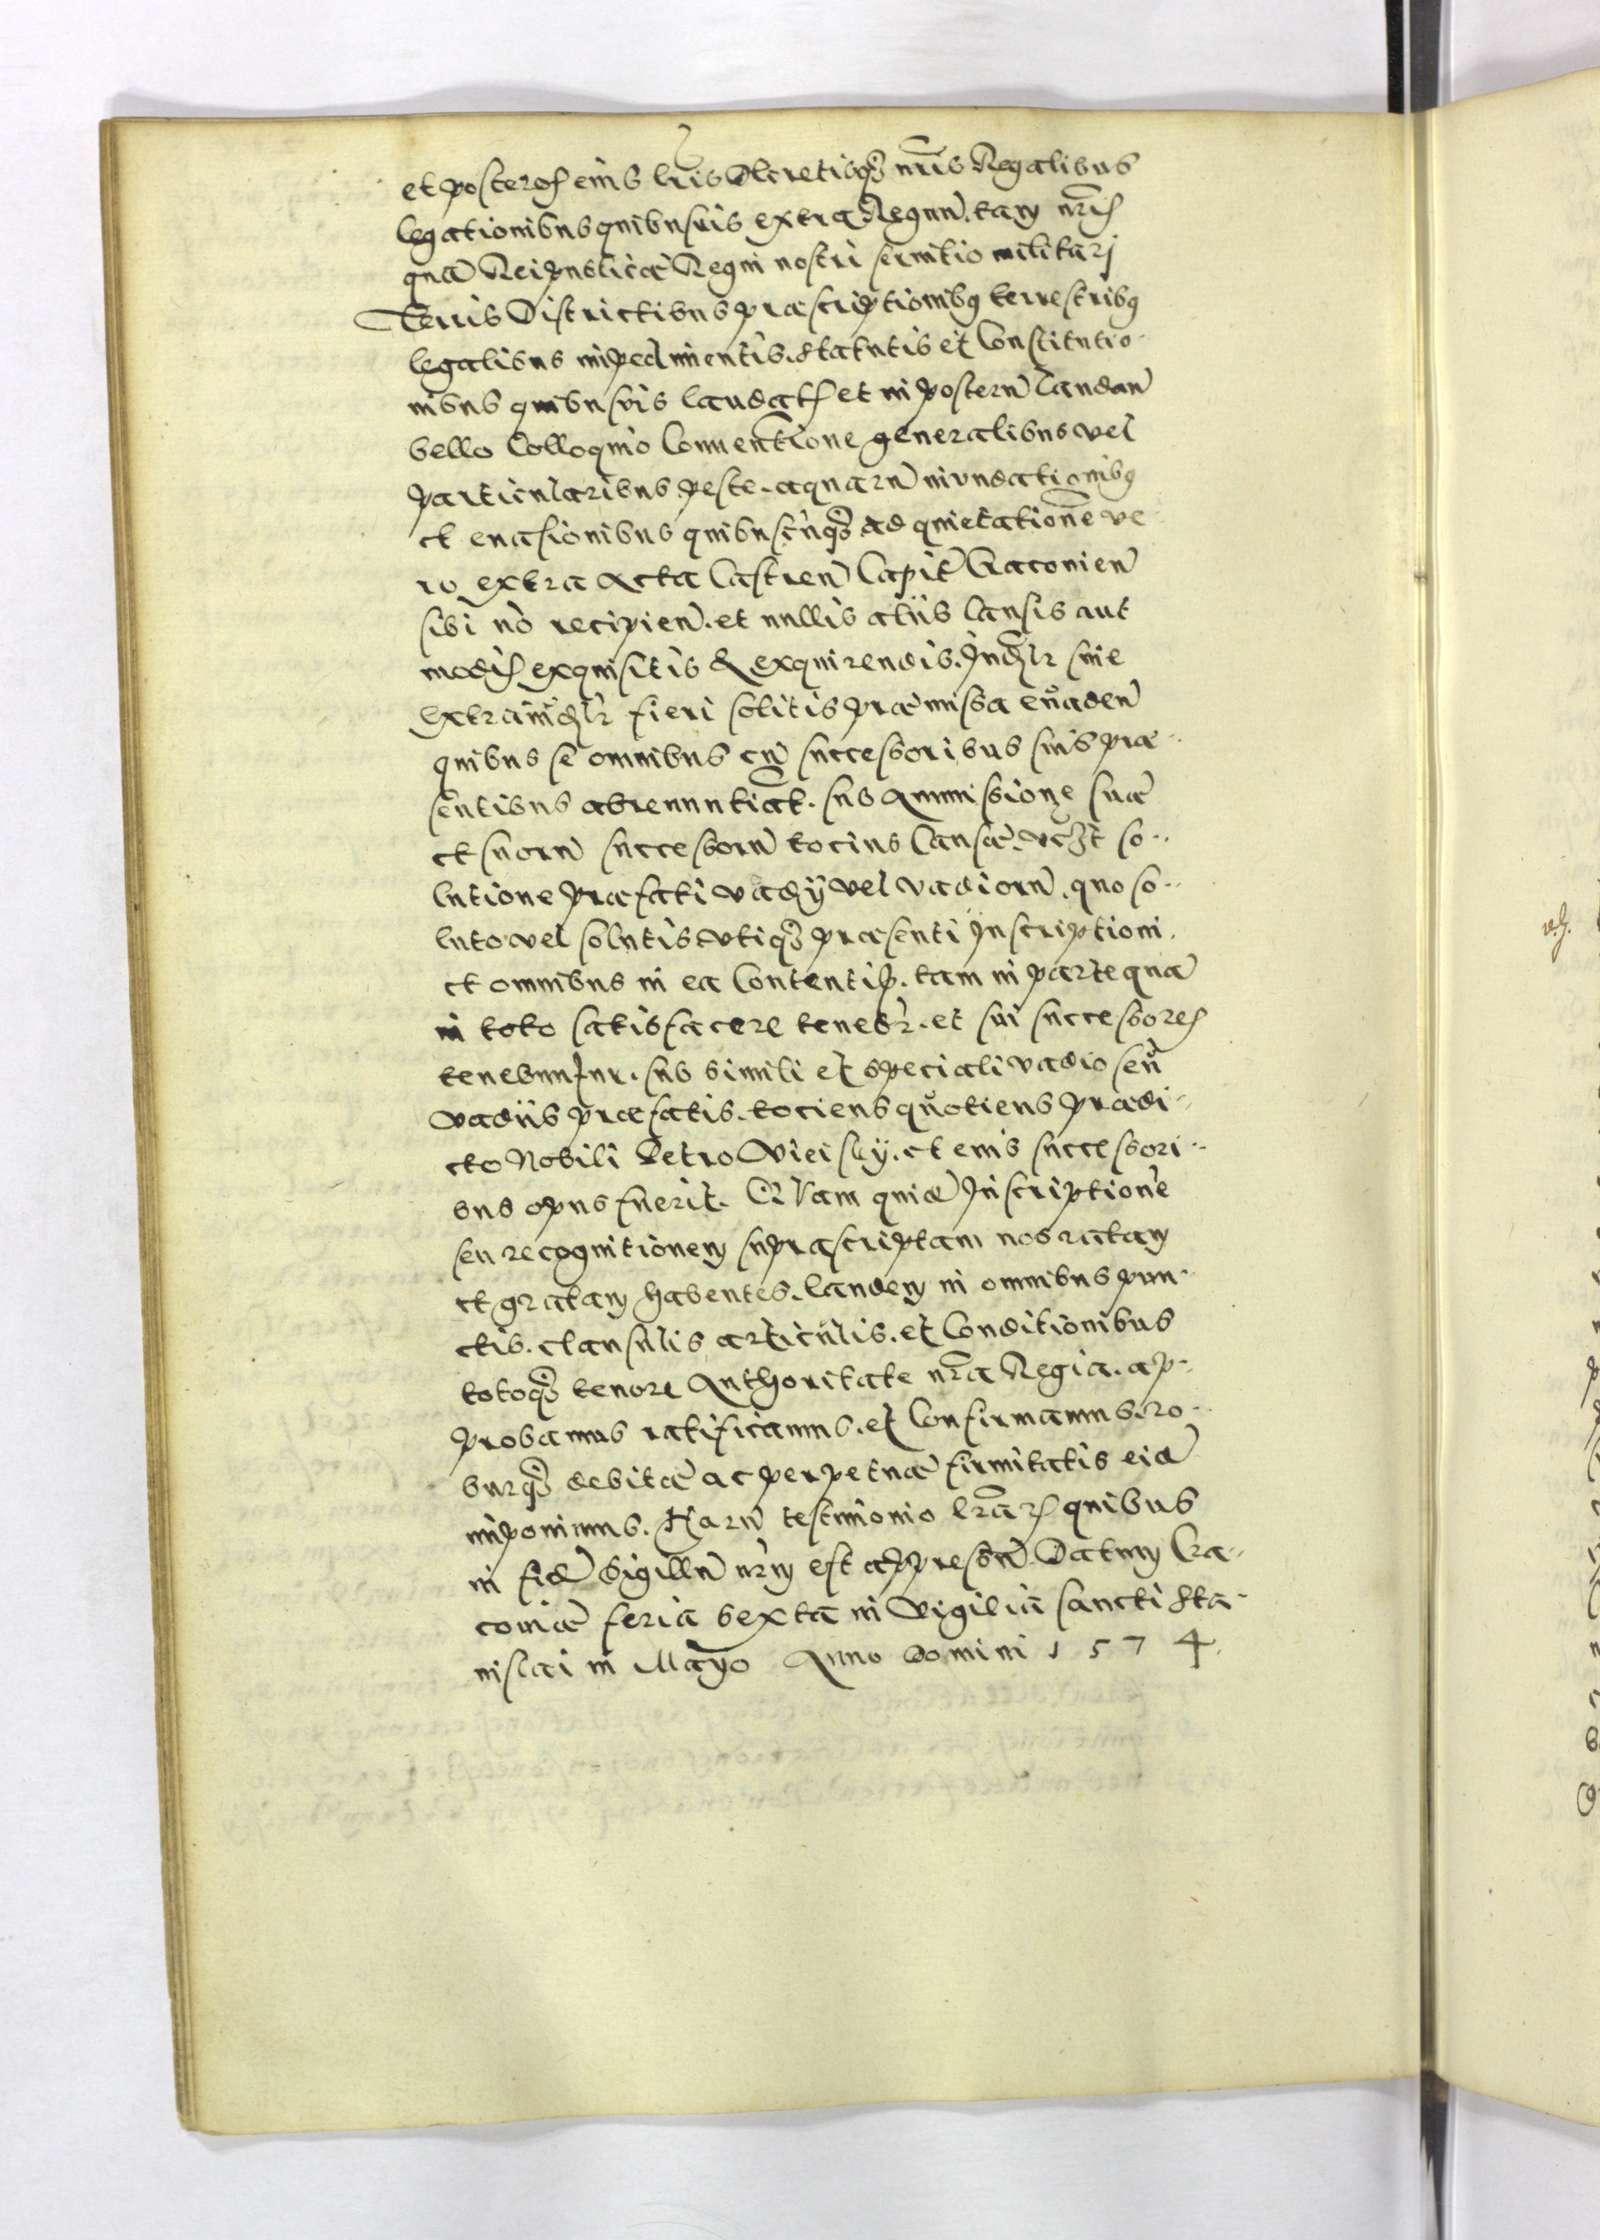 et posteros eius lris Decretisq3 nris Regalibus
legationibus quibusuis extra Regnu. tam nris
qua Reipublicæ Regni nostri seruitio militari
Terris Districtibus præscriptionibg terrestribg
legalibus impedimentis. statutis et Constitutio-
nibus quibusuis laudatis et in posteru laudan
bello Colloquio Conuentione generalibus vel
particularibus peste. aquaru inundationibg
et euasionibus quibuscuq3 ad quietatione ve
ro extra Acta Castren Capit Cracouien
sibi no recipien. et nullis aliis Causis aut
modis exquisitis & exquirendis. Judlr siue
extraiudlr fieri solitis præmissa euaden
quibus se omnibus cu successoribus suis præ-
sentibus abrenuntiat. sub Ammissione sua
et suoru successoru tocius Causæ. vczt so-
lutione præfati vadÿ vel vadioru. quo so-
luto vel solutis vtiq3 præsenti Inscriptioni.
et omnibus in ea Contentis. tam in parte qua
in toto satisfacere tenebr. et sui successores
tenebuntur. sub simili et speciali vadio seu
vadiis præfatis. tociens quotiens prædi-
cto Nobili Petro et eius successori-
bus opus fuerit. QVam quid Inscriptione
seu recognitionem supra scriptam nos ratam
et gratam habentes. eandem in omnibus pun-
ctis. clausulis articulis. et Conditionibus
totoq3 tenore Authoritate nra Regia. ap-
probamus ratificamus. et Confirmamus. ro-
burq3 debitæ ac perpetuæ firmitatis eid
imponimus. Haru testimonio lrars quibus
in fid Sigillu nrm est appressu. Datum Cra-
couiæ feria sexta in Vigilia sancti Sta-
nislai in Mayo Anno Domini 1574.